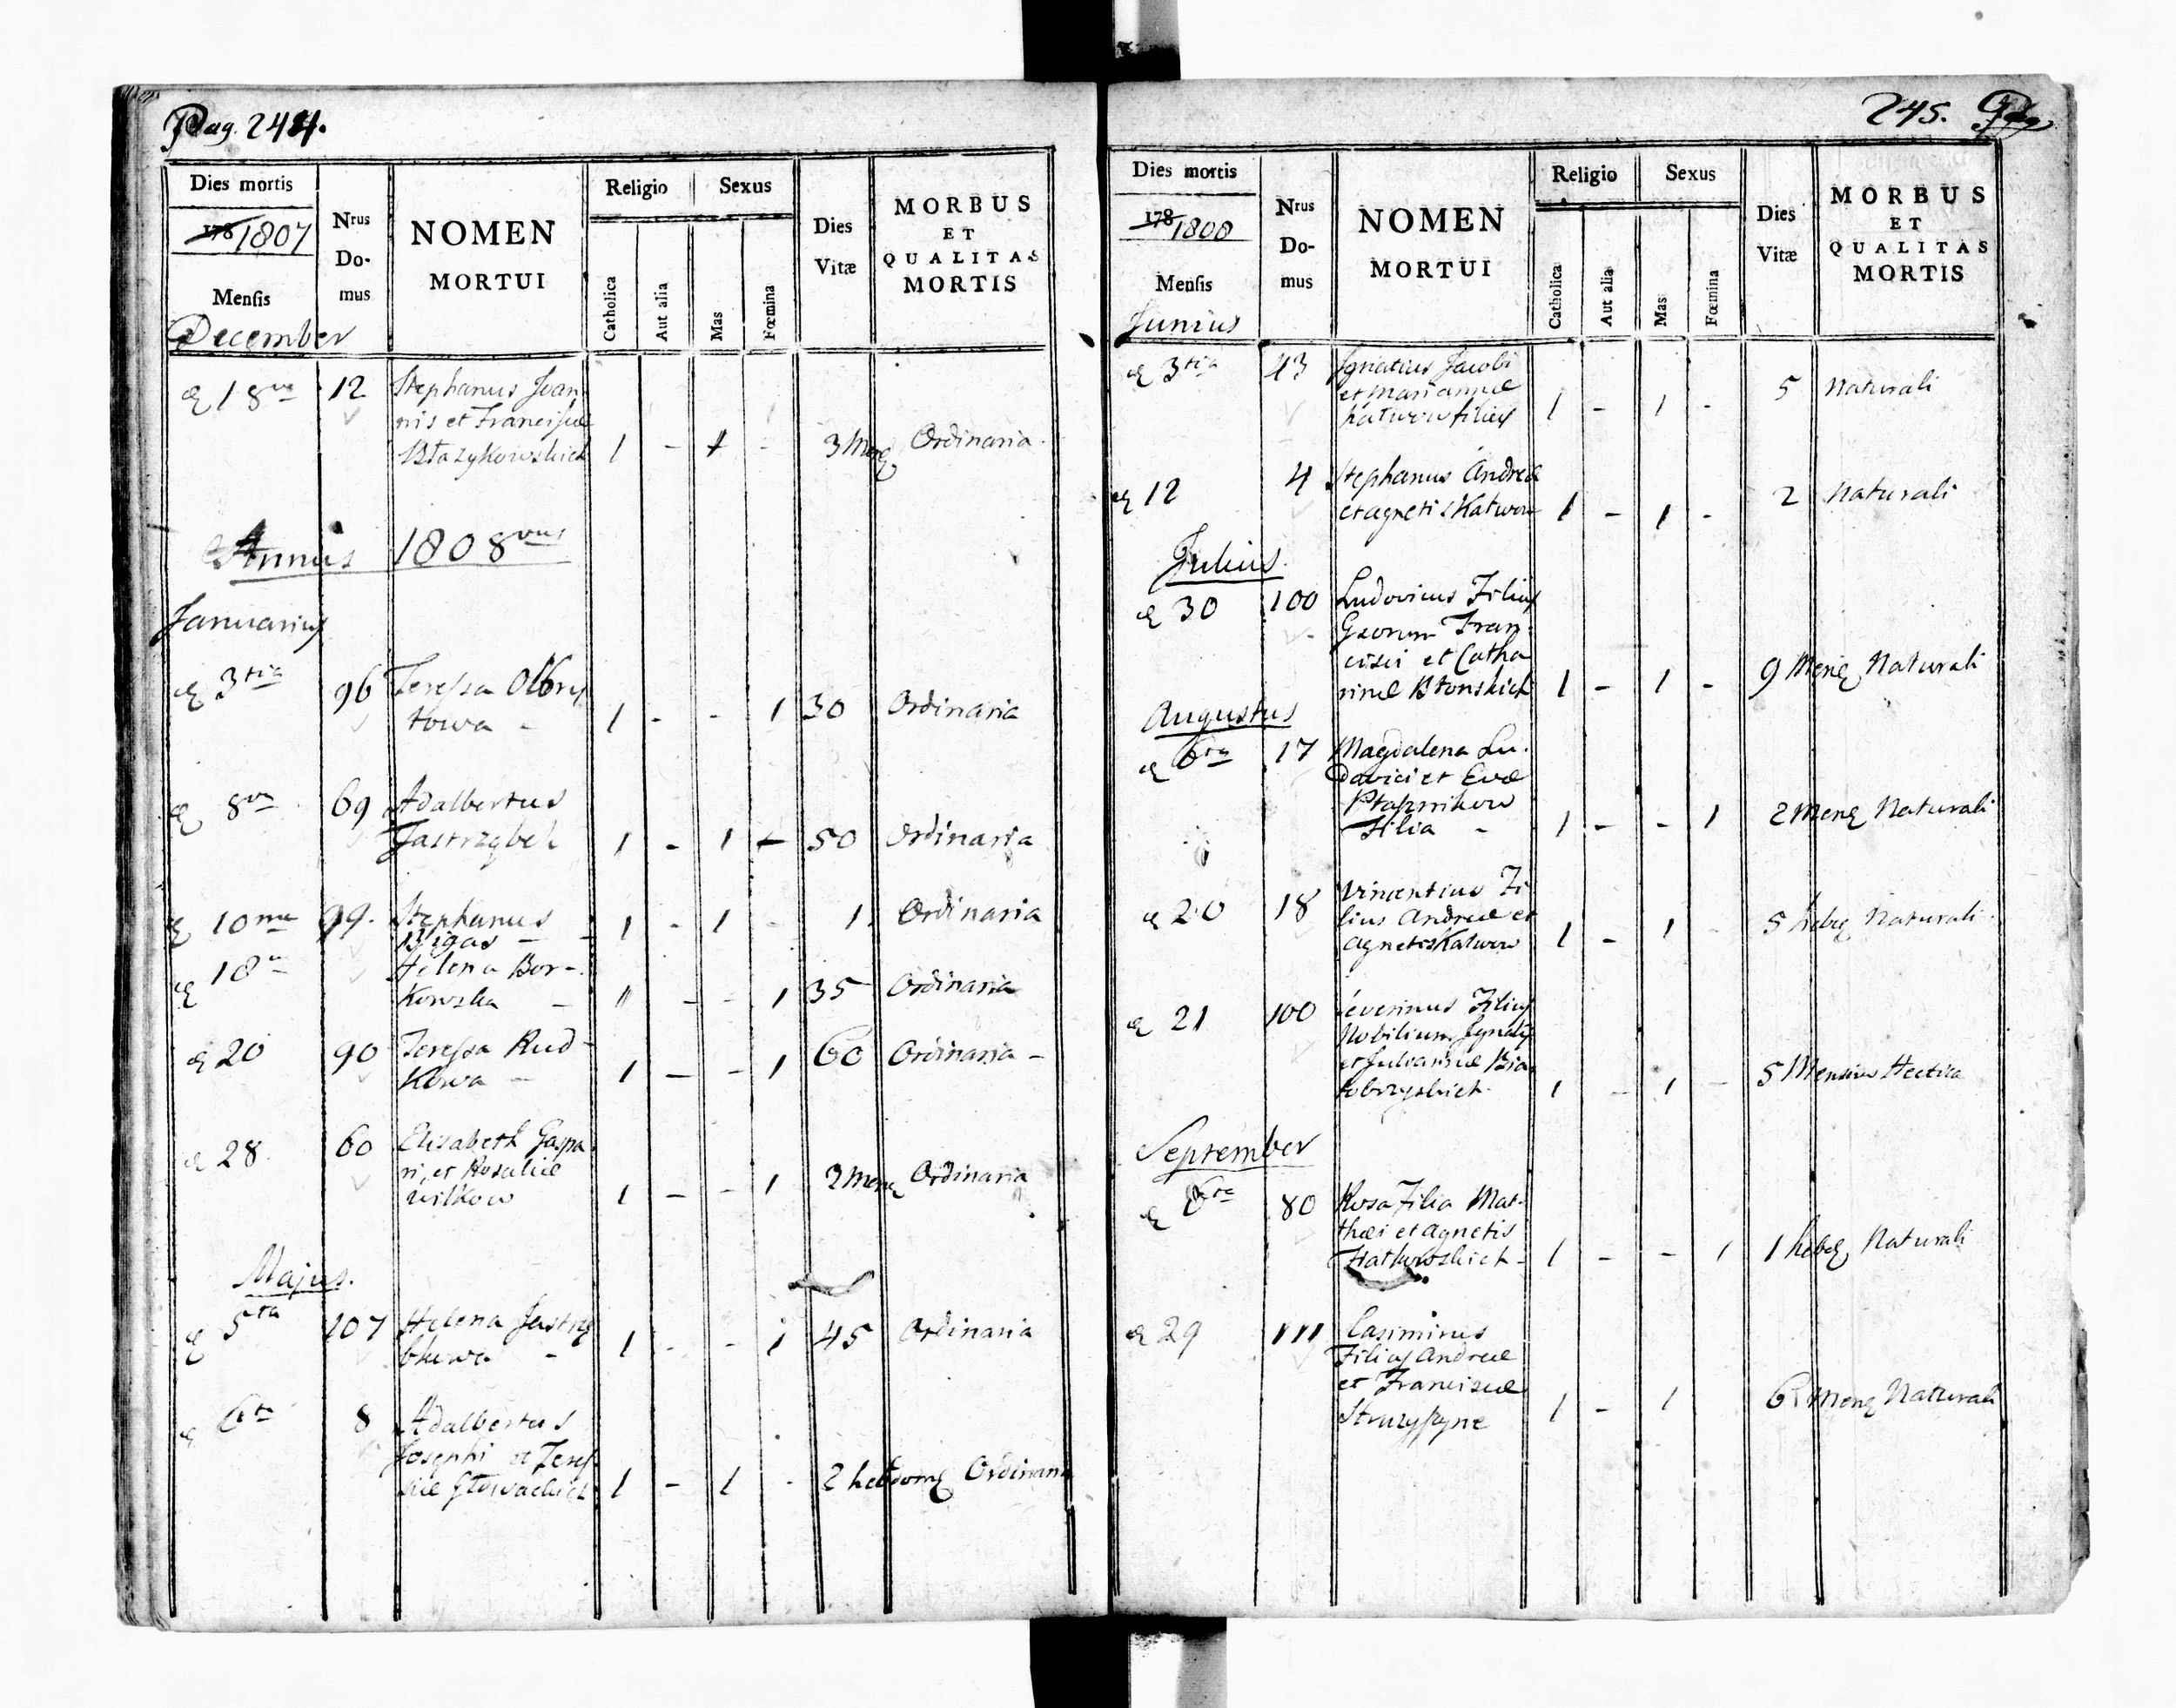 Pag. 244.
Dies mortis
178 1807
Mensis
December
Nrus
Do-
mus
NOMEN
MORTUI
Religio
Sexus
Catholica
Aut alia
Mas
Fœmina
Dies
Vitæ
MORBUS
ET
QUALITAS
MORTIS
18va 12 Stephanus Joan
nis et Franciscæ
Błazykowskich 1 - 1 - 3 Mens Ordinaria.
Annus 1808vus
Januarius
3tia 96 Teressa Olbry
towa - 1 - - 1 30 Ordinaria
8va 69 Adalbertus
Jastrząbek 1 - 1 - 50 Ordinaria
10ma 99. Stephanus
Bigas - 1 - 1 - 1 Ordinaria
18a Helena Bor-
kowska - 1 - - 1 35 Ordinaria
20 90 Teressa Rud-
kowa - 1 - - 1 60 Ordinaria -
28 60 Elisabeth Gaspa
ri, et Rosaliæ
Wilkow 1 - - 1 2 Mens Ordinaria
Majus.
5ta 107 Helena Jastrzę
bkowa - 1 - - 1 45 Ordinaria
6ta 8 Adalbertus
Josephi et Teres
siæ Głowackich 1 - 1 - 2 hebdom Ordinaria
245. Pag
Dies mortis
178 1808
Mensis
Junius
Nrus
Do-
mus
NOMEN
MORTUI
Religio
Sexus
Catholica
Aut alia
Mas
Fœmina
Dies
Vitæ
MORBUS
ET
QUALITAS
MORTIS
3tia 43 Ignatius Jacobi
et Mariannæ
Katurow filius 1 - 1 - 5 Naturali
12 4 Stephanus Andreæ
et Agnetis Katurow 1 - 1 - 2 Naturali
Julius.
30 100 Ludovicus Filius
Gsorum Fran-
cisci et Catha
rinæ Błonskich 1 - 1 - 9 Mens Naturali
Augustus
6ta 17 Magdalena Lu-
dovici et Evæ
Ptasznikow
Filia - 1 - - 1 2 Mens Naturali
20 18 Vincentius Fi
lius Andreæ et
Agnetis Katurow 1 - 1 - 5 hebd Naturali.
21 100 Severinus Filius
Nobilium Ignatij
et Juliannæ Bia
łobrzyskich. 1 - 1 - 5 Mensium Hectica
September
6ta 80 Rosa Filia Mat-
thæi et Agnetis
1 - - 1 1 hebd Naturali
29 111 Casimirus
Filius Andreæ
et Franciscæ
1 - 1 6 Mens Naturali